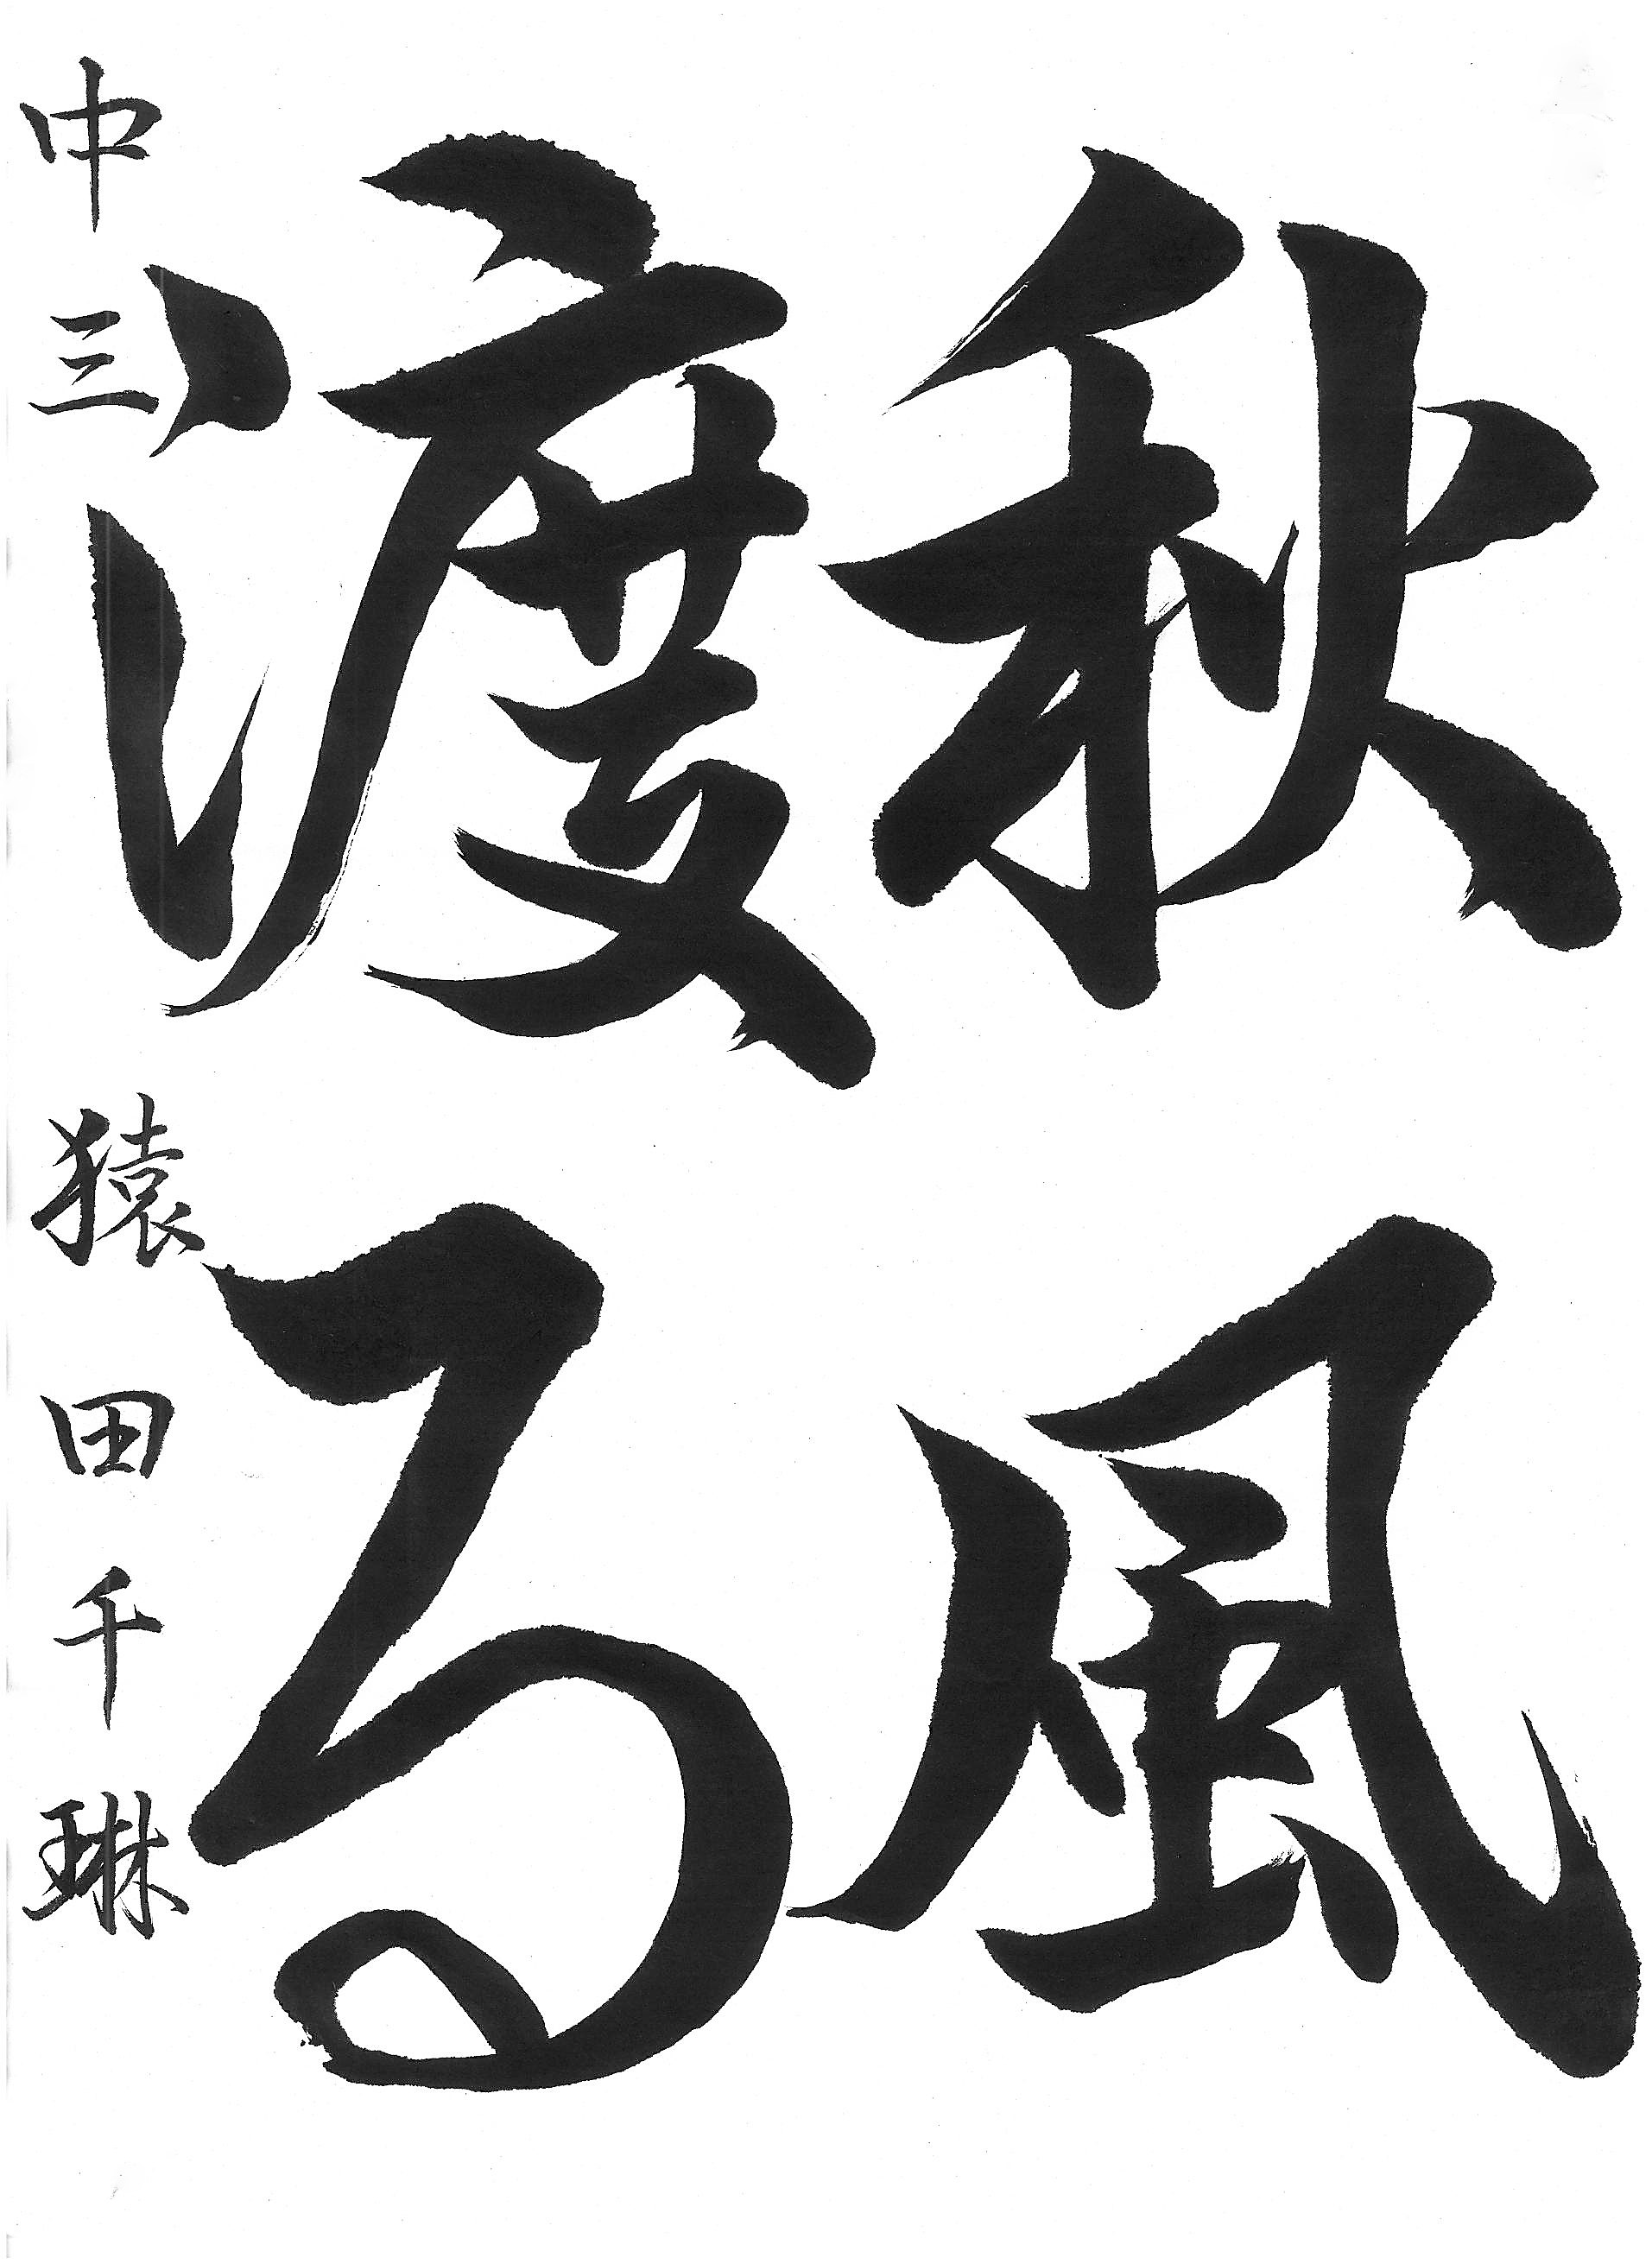 秋風
渡る
中三 猿田千琳